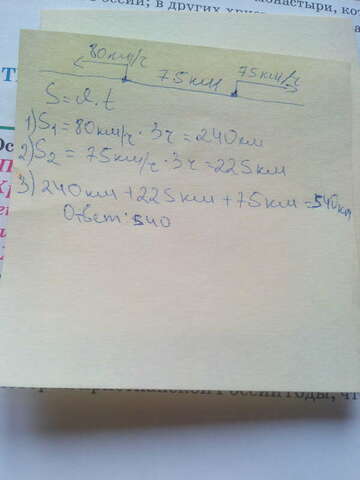 оссии; в других хри
монастыри, кот
80км/ч 75км 75км/ч
S=υ.t
1) S₁ = 80км/ч · 3ч = 240км
2) S₂ = 75км/ч · 3ч = 225км
3) 240км + 225км + 75км = 540км
Ответ: 540